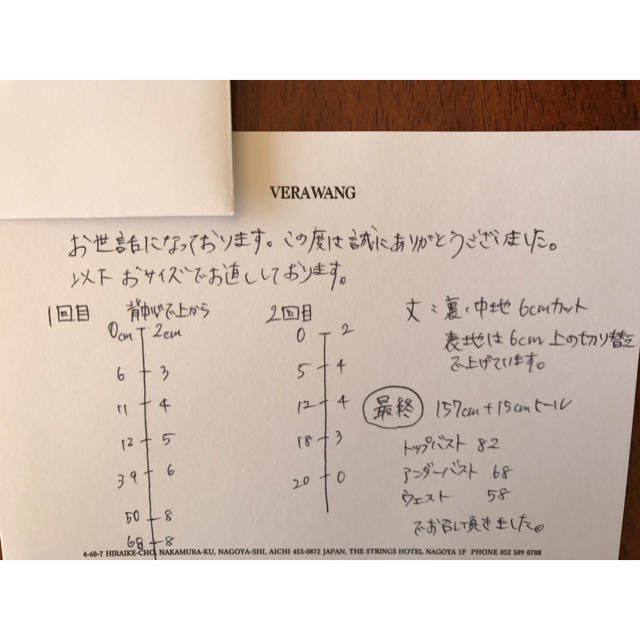 VERAWANG
お世話になっております。この度は誠にありがとうございました。
以下 おサイズでお直ししております。
1回目 背中心で上から
0cm 2cm
6 3
11 4
12 5
39 6
50 8
68 8
2回目
0 2
5 4
12 4
18 3
20 0
丈：裏・中地 6cmカット
表地は6cm 上の切り替え
で上げています。
最終 157cm+15cmヒール
トップバスト 82
アンダーバスト 68
ウェスト 58
でお召し頂きました。
4-60-7 HIRAIKE-CHO, NAKAMURA-KU, NAGOYA-SHI, AICHI 453-0872 JAPAN, THE STRINGS HOTEL NAGOYA 1F PHONE 052 589 0788